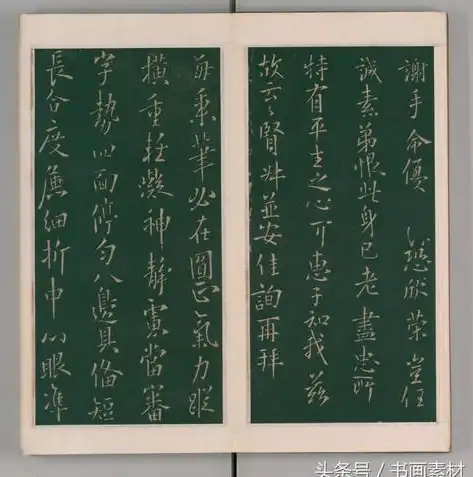 謝手命優 慰欣荣豈任
誠素弟恨此身已老盡忠所
特有平生之心可惠子知我兹
故云々賢舛並安佳詢再拜
每秉筆必在圓正氣力縱
橫重輕凝神靜慮當審
字勢四面停勻八邊具俻短
長合度麁細折中心眼准
头条号／书画素材